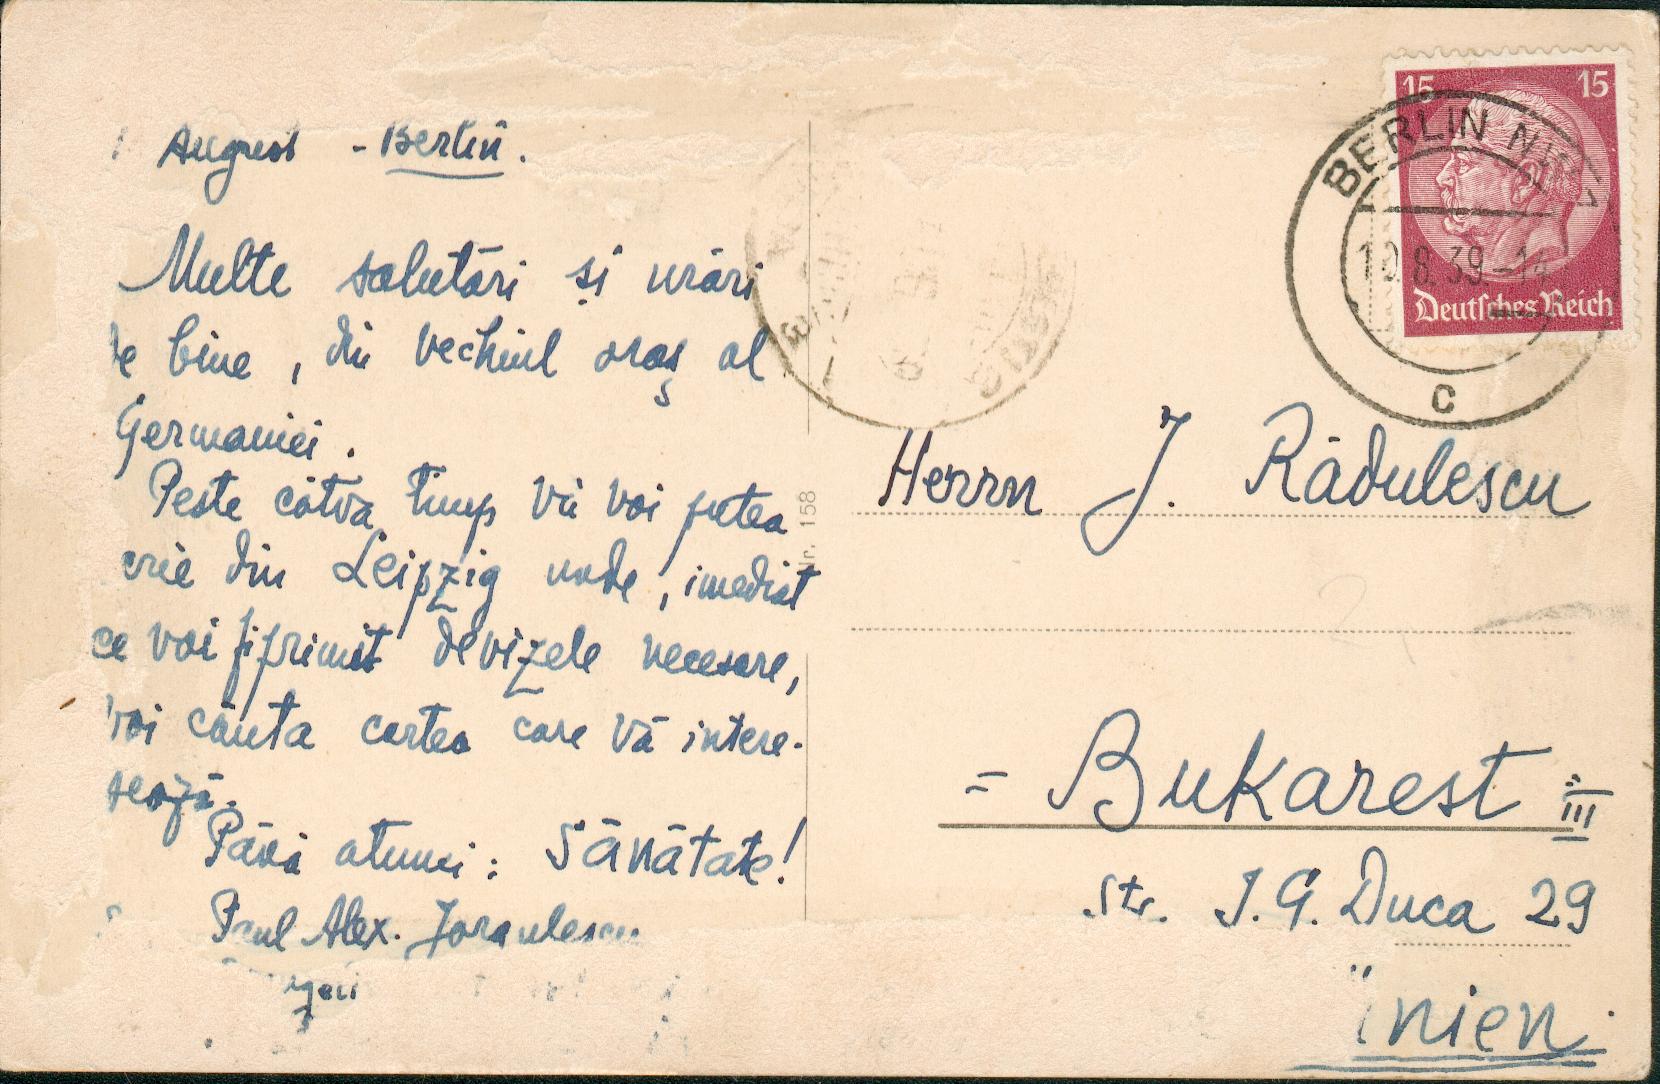 August - Berlin.
Multe salutări și urări
de bine, din vechiul oraș al
Germaniei.
Peste câtva timp Vă voi putea
crie din Leipzig unde, imediat
ce voi fi primit devizele necesare,
voi căuta cartea care Vă intere-
sează.
Până atunci: Sănătate!
Paul Alex.
Nr. 158
15 15
Deutsches Reich
BERLIN
10.8.39-14
c
Herrn J. Rădulescu
= Bukarest III
Str. I. G. Duca 29
nien.